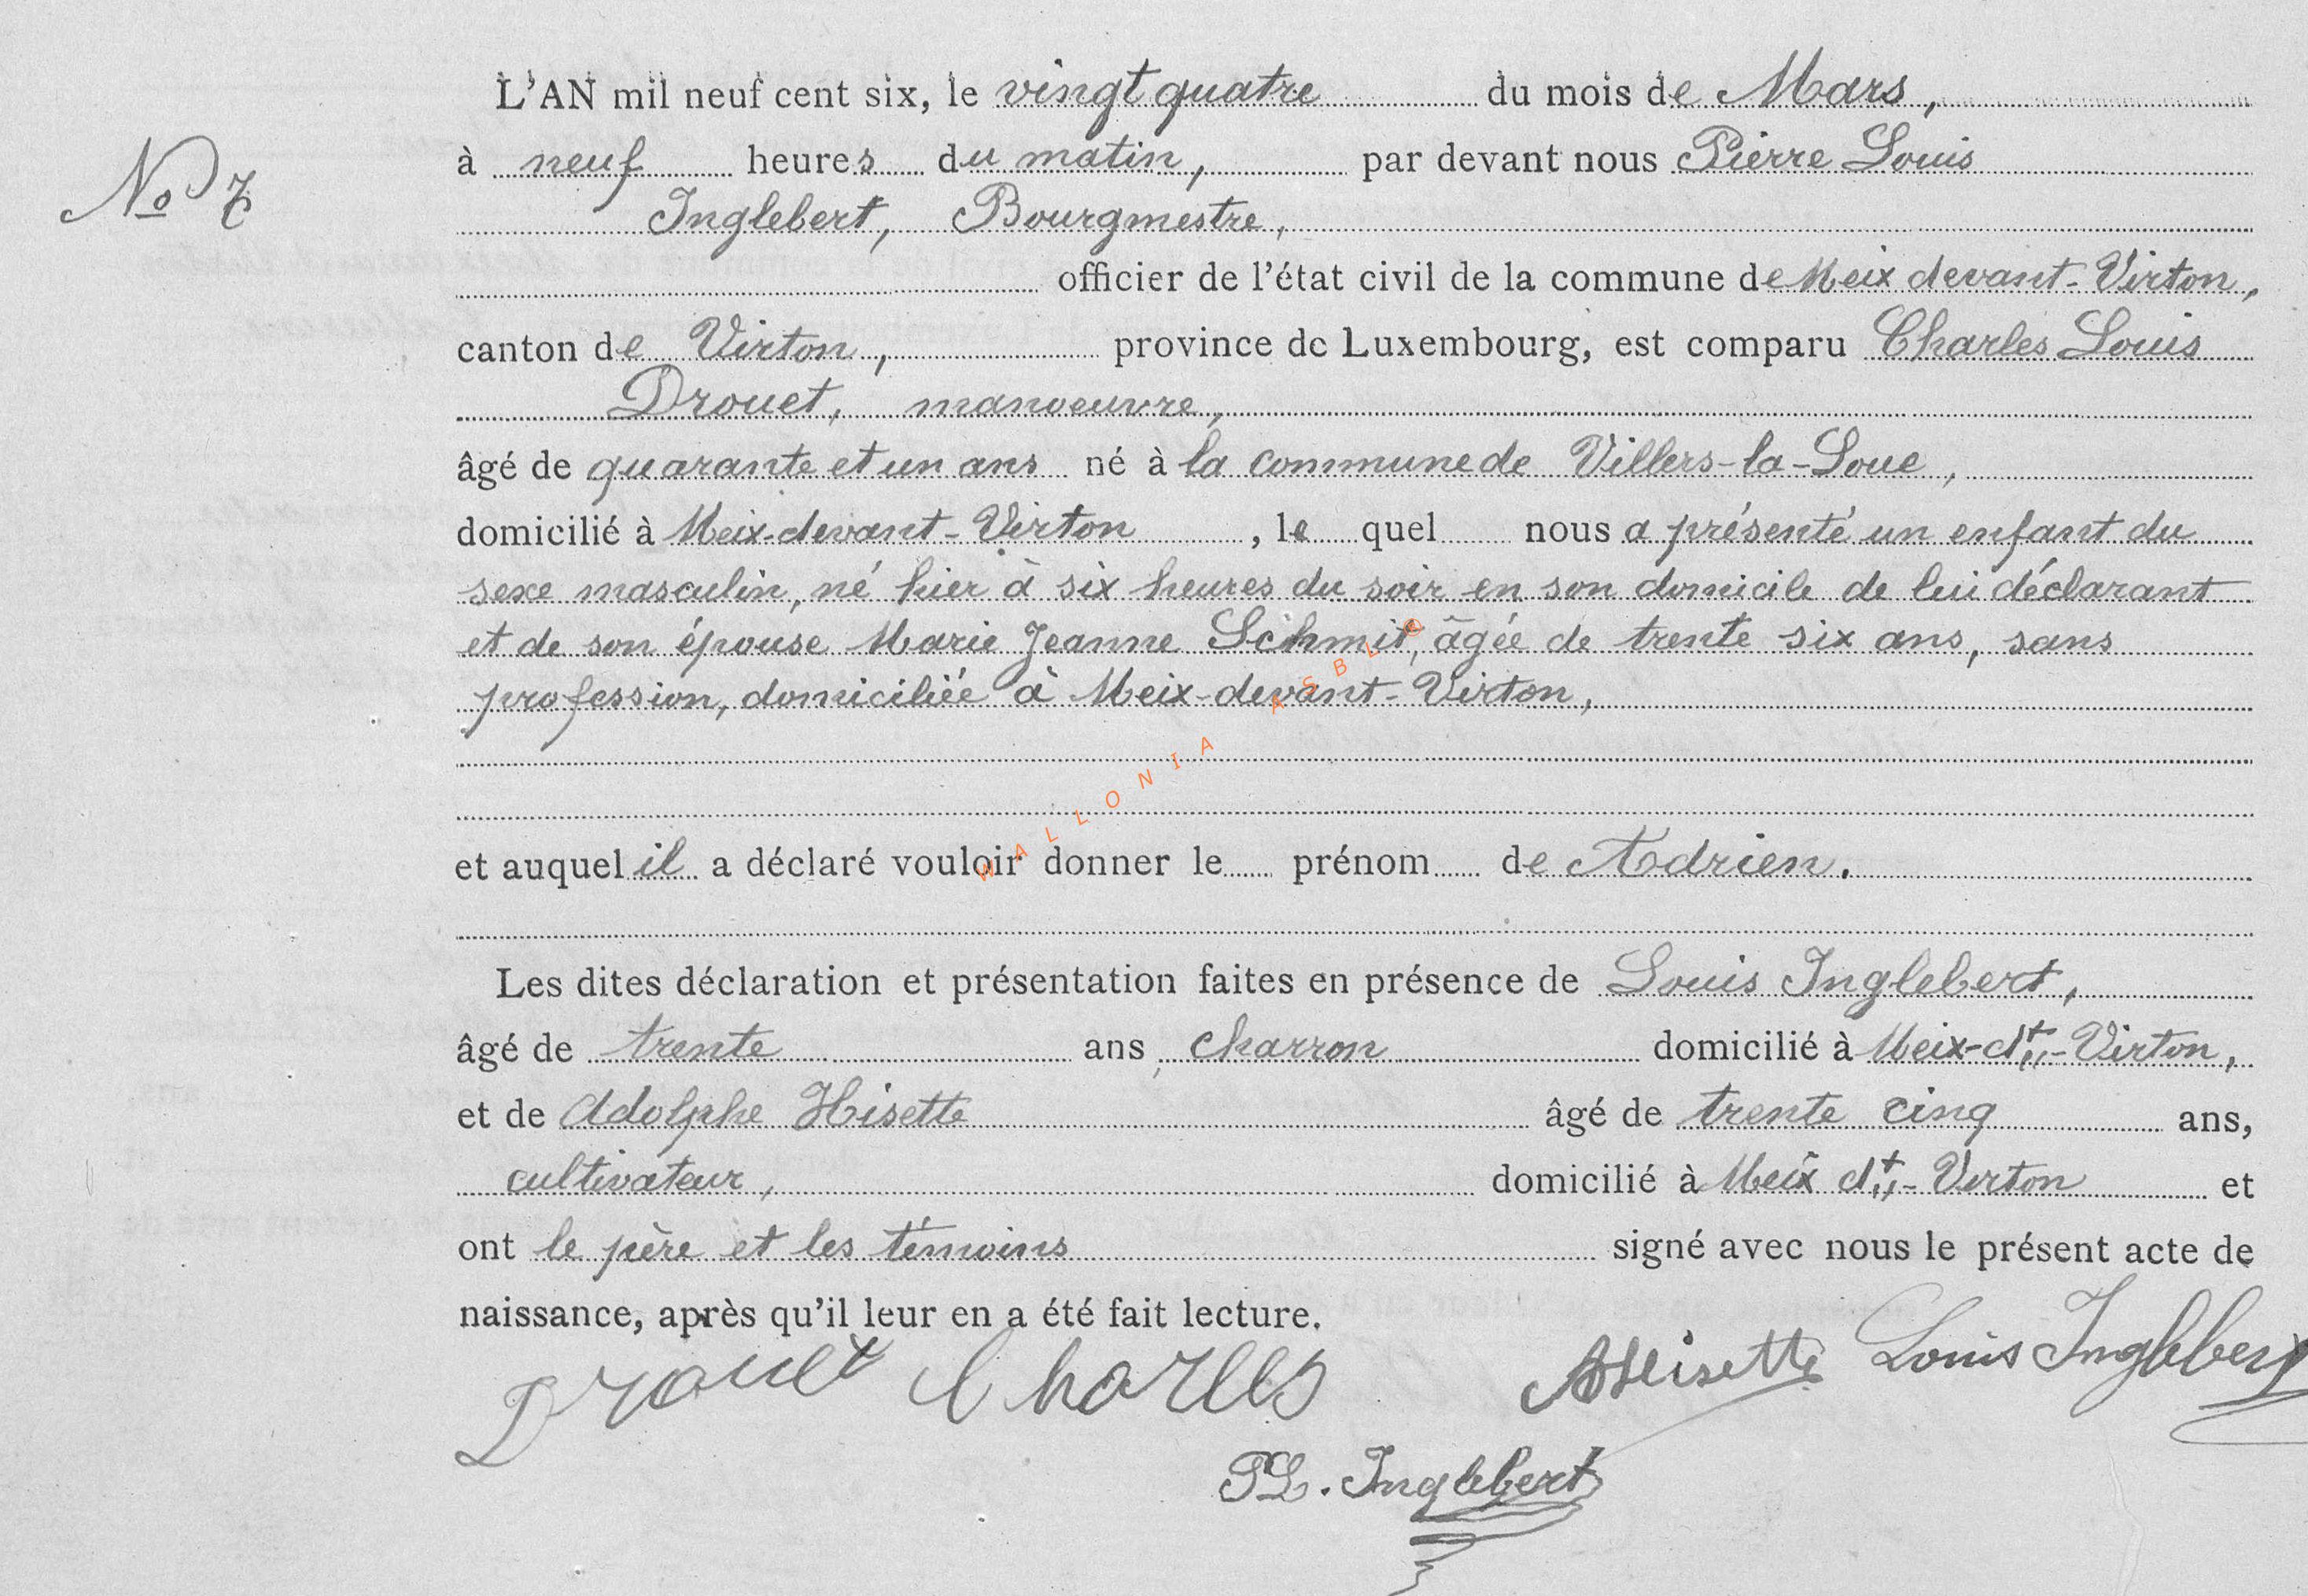 L'AN mil neuf cent six, le vingt quatre du mois de Mars,
à neuf heures du matin, par devant nous Pierre Louis
No 7
Inglebert, Bourgmestre,
officier de l'état civil de la commune de Meix devant-Virton,
canton de Virton, province de Luxembourg, est comparu Charles Louis
Drouet, manoeuvre,
âgé de quarante et un ans né à la commune de Villers-la-Loue,
domicilié à Meix-devant-Virton, le quel nous a présenté un enfant du
sexe masculin, né hier à six heures du soir en son domicile de lui déclarant
et de son épouse Marie Jeanne Schmit, âgée de trente six ans, sans
profession, domiciliée à Meix-devant-Virton,
WALLONIA ASBL ©
et auquel il a déclaré vouloir donner le prénom de Adrien.
Les dites déclaration et présentation faites en présence de Louis Inglebert,
âgé de trente ans, charron domicilié à Meix-dt-Virton,
et de Adolphe Hisette âgé de trente cinq ans,
cultivateur, domicilié à Meix dt-Virton et
ont le père et les témoins signé avec nous le présent acte de
naissance, après qu'il leur en a été fait lecture.
Drouet Charles AHisette Louis Inglebert
PL. Inglebert